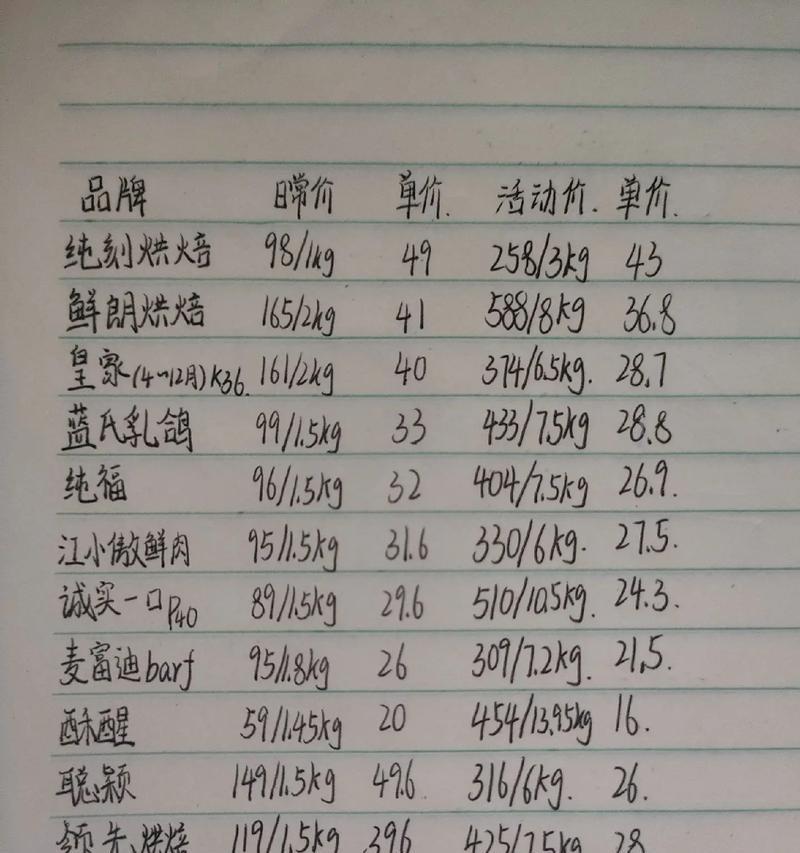 品牌 日常价 单价. 活动价. 单价.
纯刻烘焙 98/1kg 49 258/3kg 43
鲜朗烘焙 165/2kg 41 588/8kg 36.8
皇家(4~12月)K36. 161/2kg 40 374/6.5kg. 28.7
蓝氏乳鸽 99/1.5kg 33 433/7.5kg 28.8
纯福 96/1.5kg 32 404/7.5kg 26.9.
江小傲鲜肉 95/1.5kg 31.6 330/6kg. 27.5.
诚实一口P40 89/1.5kg 29.6 510/10.5kg. 24.3.
麦富迪barf 95/1.8kg 26 309/7.2kg. 21.5.
酥醒 59/1.45kg 20 454/13.95kg 16.
聪颖 149/1.5kg 49.6 316/6kg. 26.
领先烘焙 119/1.5kg 396 425/7.5kg 28